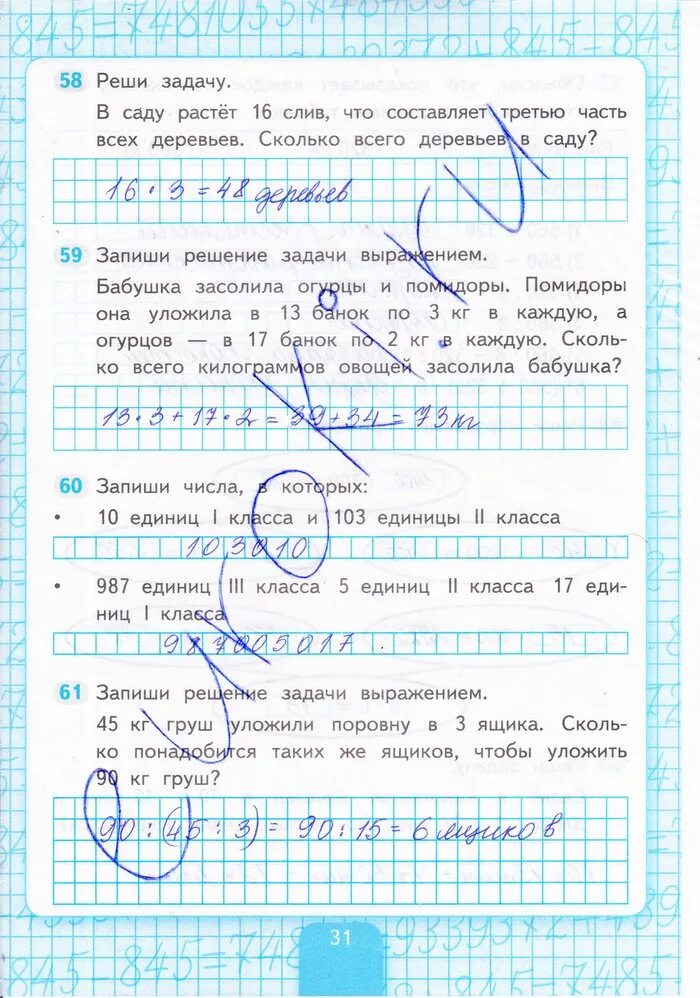 58 Реши задачу.
В саду растёт 16 слив, что составляет третью часть
всех деревьев. Сколько всего деревьев в саду?
16 · 3 = 48 деревьев
59 Запиши решение задачи выражением.
Бабушка засолила огурцы и помидоры. Помидоры
она уложила в 13 банок по 3 кг в каждую, а
огурцов — в 17 банок по 2 кг в каждую. Сколь-
ко всего килограммов овощей засолила бабушка?
13 · 3 + 17 · 2 = 39 + 34 = 73 кг
60 Запиши числа, в которых:
• 10 единиц I класса и 103 единицы II класса
103010
• 987 единиц III класса 5 единиц II класса 17 еди-
ниц I класса
987005017
61 Запиши решение задачи выражением.
45 кг груш уложили поровну в 3 ящика. Сколь-
ко понадобится таких же ящиков, чтобы уложить
90 кг груш?
90 : (45 : 3) = 90 : 15 = 6 ящиков
31